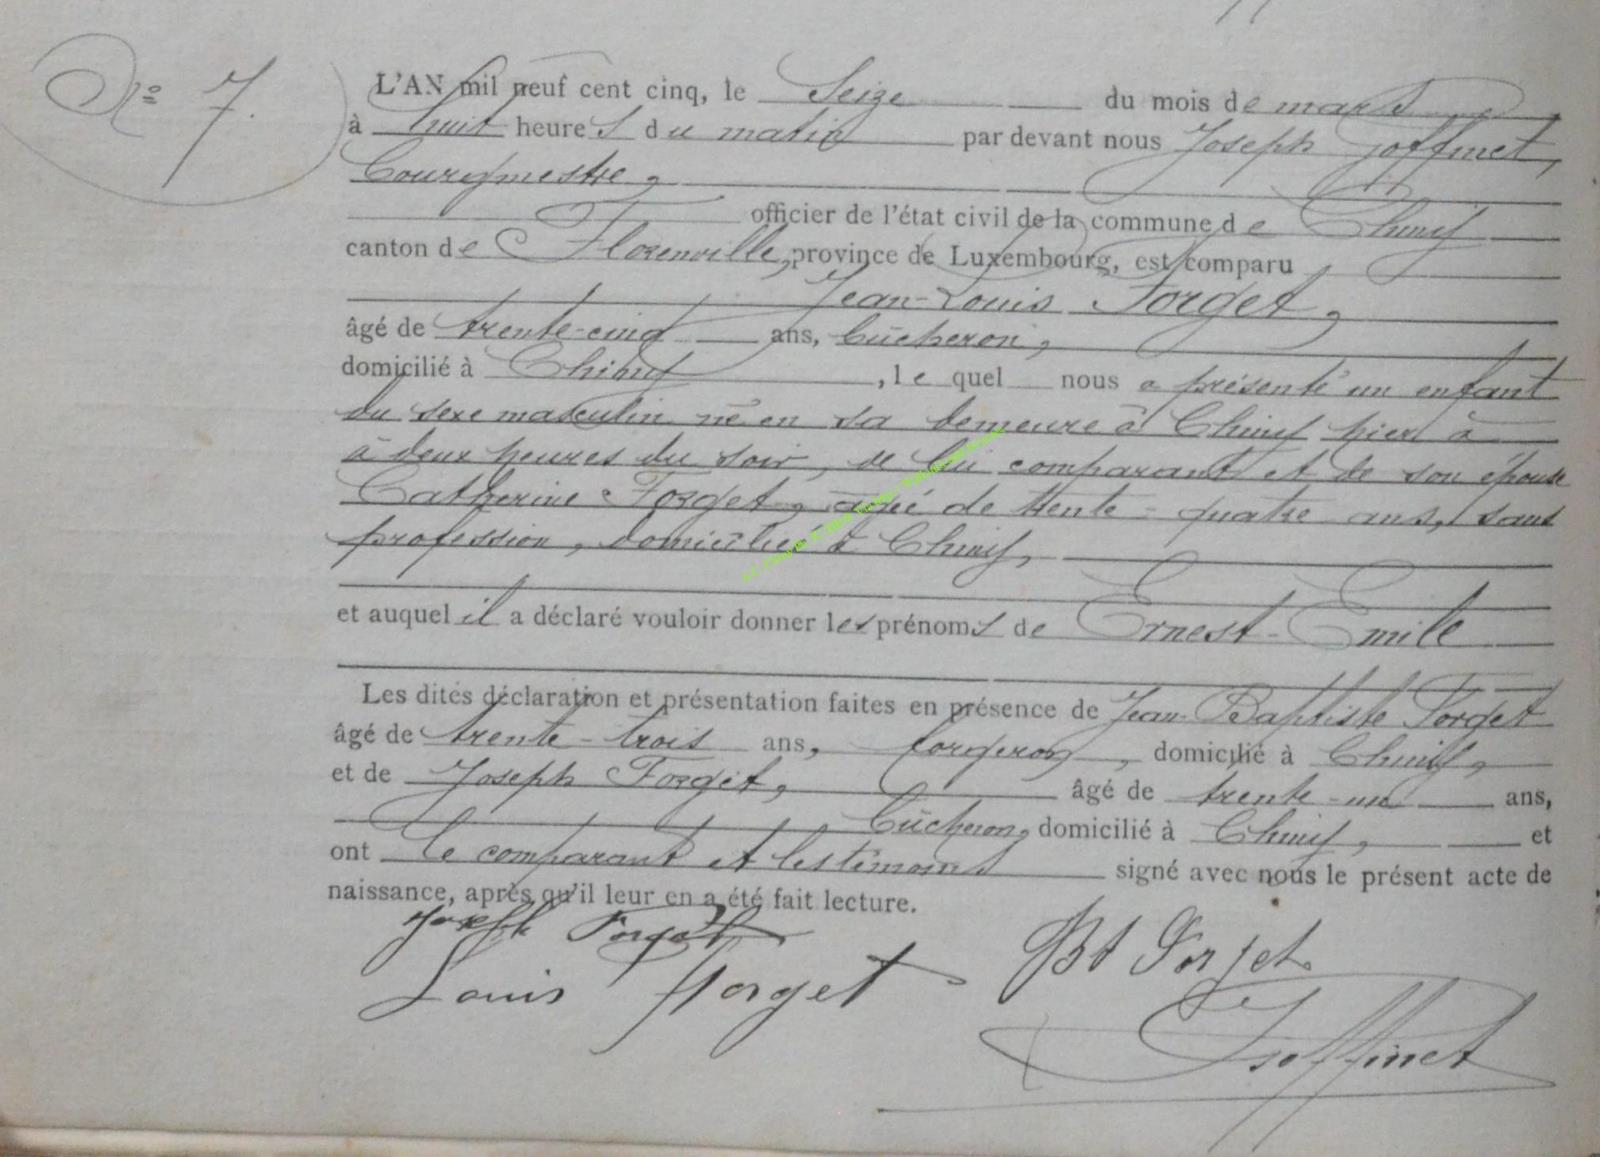 N° 7.
L'AN mil neuf cent cinq, le Seize du mois de mars
à huit heures du matin par devant nous Joseph Goffinet,
Bourgmestre,
officier de l'état civil de la commune de Chiny
canton de Florenville, province de Luxembourg, est comparu
Jean-Louis Forget,
âgé de trente-cinq ans, bûcheron,
domicilié à Chiny, lequel nous a présenté un enfant
du sexe masculin né en sa demeure à Chiny hier à
à deux heures du soir, de lui comparant et de son épouse
Catherine Forget, agée de trente-quatre ans, sans
profession, domiciliée à Chiny,
et auquel il a déclaré vouloir donner les prénoms de Ernest-Emile
Les dites déclaration et présentation faites en présence de Jean-Baptiste Forget
âgé de trente-trois ans, forgeron, domicilié à Chiny,
et de Joseph Forget, âgé de trente-un ans,
bûcheron, domicilié à Chiny, et
ont le comparant et les témoins signé avec nous le présent acte de
naissance, après qu'il leur en a été fait lecture.
Joseph Forget
Bt Forget
Louis Forget
JGoffinet